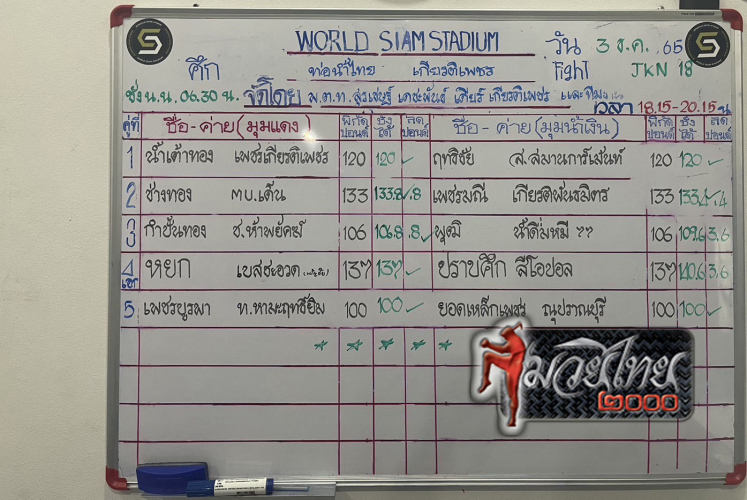 WORLD SIAM STADIUM วัน 3 ธ.ค. 65
ศึก ท่อน้ำไทย เกียรติเพชร Fight JKN 18
ชั่ง น.น. 06.30 น. จัดโดย พ.ต.ท. เกียรติเพชร และทีมงาน เวลา 18.15-20.15 น.
คู่ที่ ชื่อ - ค่าย (มุมแดง) พิกัด ปอนด์ ชั่ง ได้ ลด ปอนด์ ชื่อ - ค่าย (มุมน้ำเงิน) พิกัด ปอนด์ ชั่ง ได้ ลด ปอนด์
1 น้ำเต้าทอง เพชรเกียรติเพชร 120 120 ✓ ฤทธิชัย ส.สมานการ์เม้นท์ 120 120 ✓
2 ช่างทอง ตบ.เด็น 133 133.8 .8 เพชรมณี เกียรติพันธมิตร 133 133.4 .4
3 กำปั่นทอง ช.ห้าพยัคฆ์ 106 106.8 .8 พุฒิ น้ำดื่มหมี ?? 106 109.6 3.6
4 เอก หยก เบสชะอวด 137 137 ✓ ปราบศึก สีโอปอล 137 140.6 3.6
5 เพชรบูรพา ท.หามะฤทธิ์ยิม 100 100 ✓ ยอดเหล็กเพชร ณุปราณบุรี 100 100 ✓
มวยไทย
๒๐๐๐